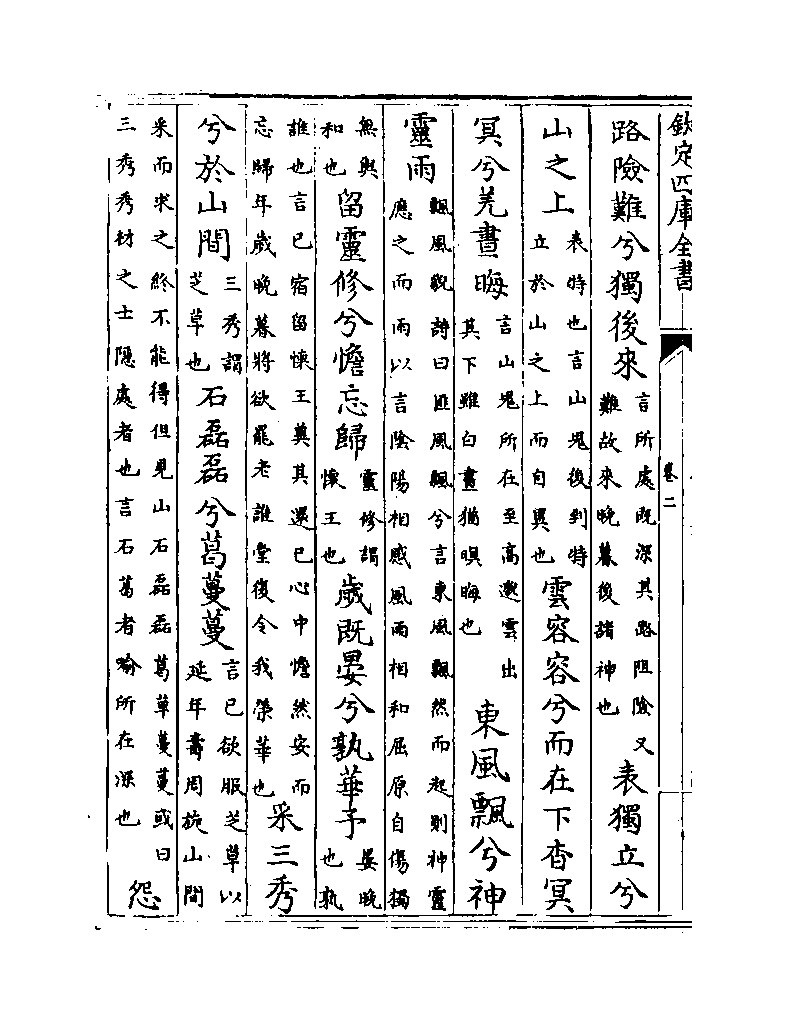 欽定四庫全書
卷二
路險難兮獨後來言所處既深其路阻險又難故來晚暮後諸神也表獨立兮
山之上表特也言山鬼後到特立於山之上而自異也雲容容兮而在下杳冥
冥兮羌晝晦言山鬼所在至高邈雲出其下雖白晝猶暝晦也東風飄兮神
靈雨飄風貌詩曰匪風飄兮言東風飄然而起則神靈應之而雨以言陰陽相感風雨相和屈原自傷獨
無與和也留靈修兮憺忘歸靈修謂懷王也歲既晏兮孰華予晏晚也孰
誰也言已宿留懷王冀其還已心中憺然安而忘歸年歲晚暮將欲罷老誰當復令我榮華也采三秀
兮於山間三秀謂芝草也石磊磊兮葛蔓蔓言已欲服芝草以延年壽周旋山間
采而求之終不能得但見山石磊磊葛草蔓蔓或曰三秀秀材之士隱處者也言石葛者喻所在深也怨